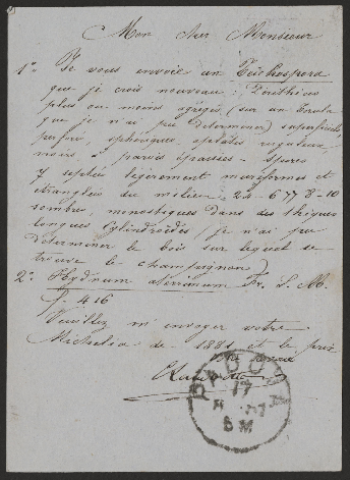 Mon cher Monsieur
1° Je vous envoie un Teichospora
que je crois nouveau. Périthèces
plus ou moins agrégés (sur un bois
que je n'ai pu déterminer) superficiels,
perforés, sphériques, rugueux,
noirs, à parois épaisses - spores
7 septées légèrement muriformes et
étranglées au milieu 24-6 77 8-10
sombre, monostiques dans des thèques
longues cylindroïdes, je n'ai pu
déterminer le bois sur lequel se
trouve le champignon)
2° Hydnum aterrimum Fr. S. M.
p. 416
Veuillez m'envoyer votre
Michelia de 1881 et le prix
PADOVA
17
8 M